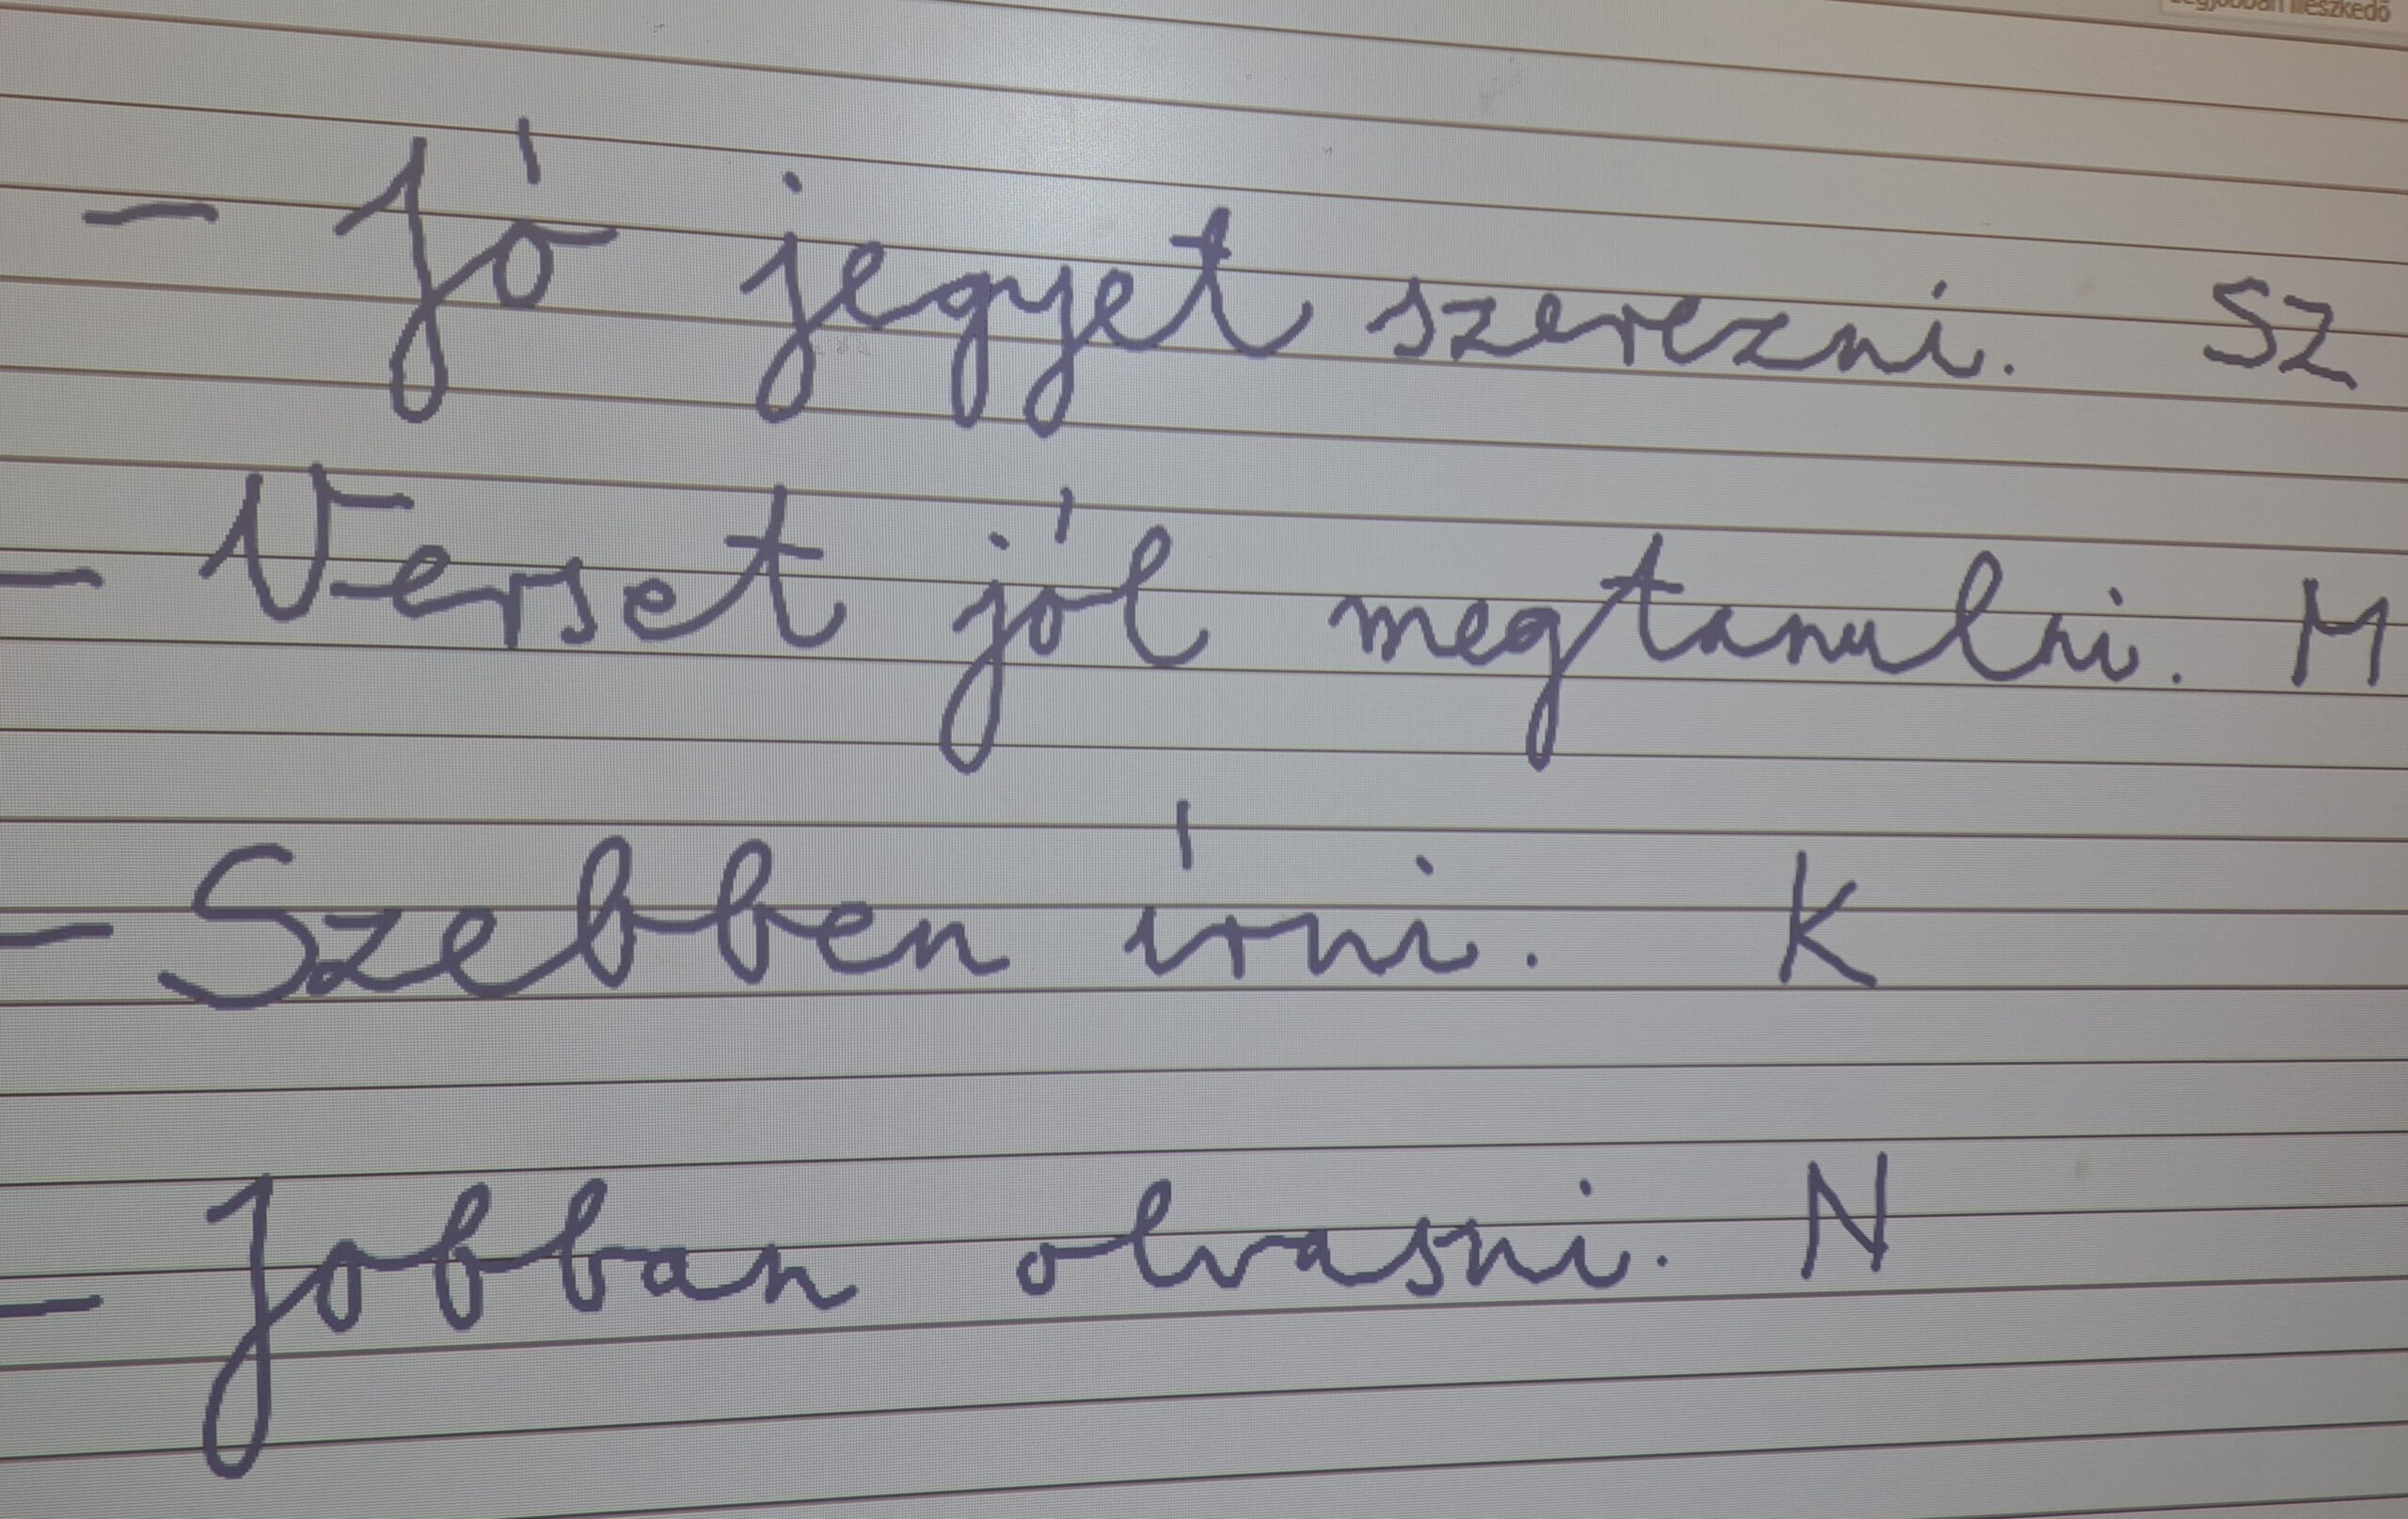 Legjobban illeszkedő
- Jó jegyet szerezni. SZ
- Verset jól megtanulni. M
- Szebben írni. K
- Jobban olvasni. N